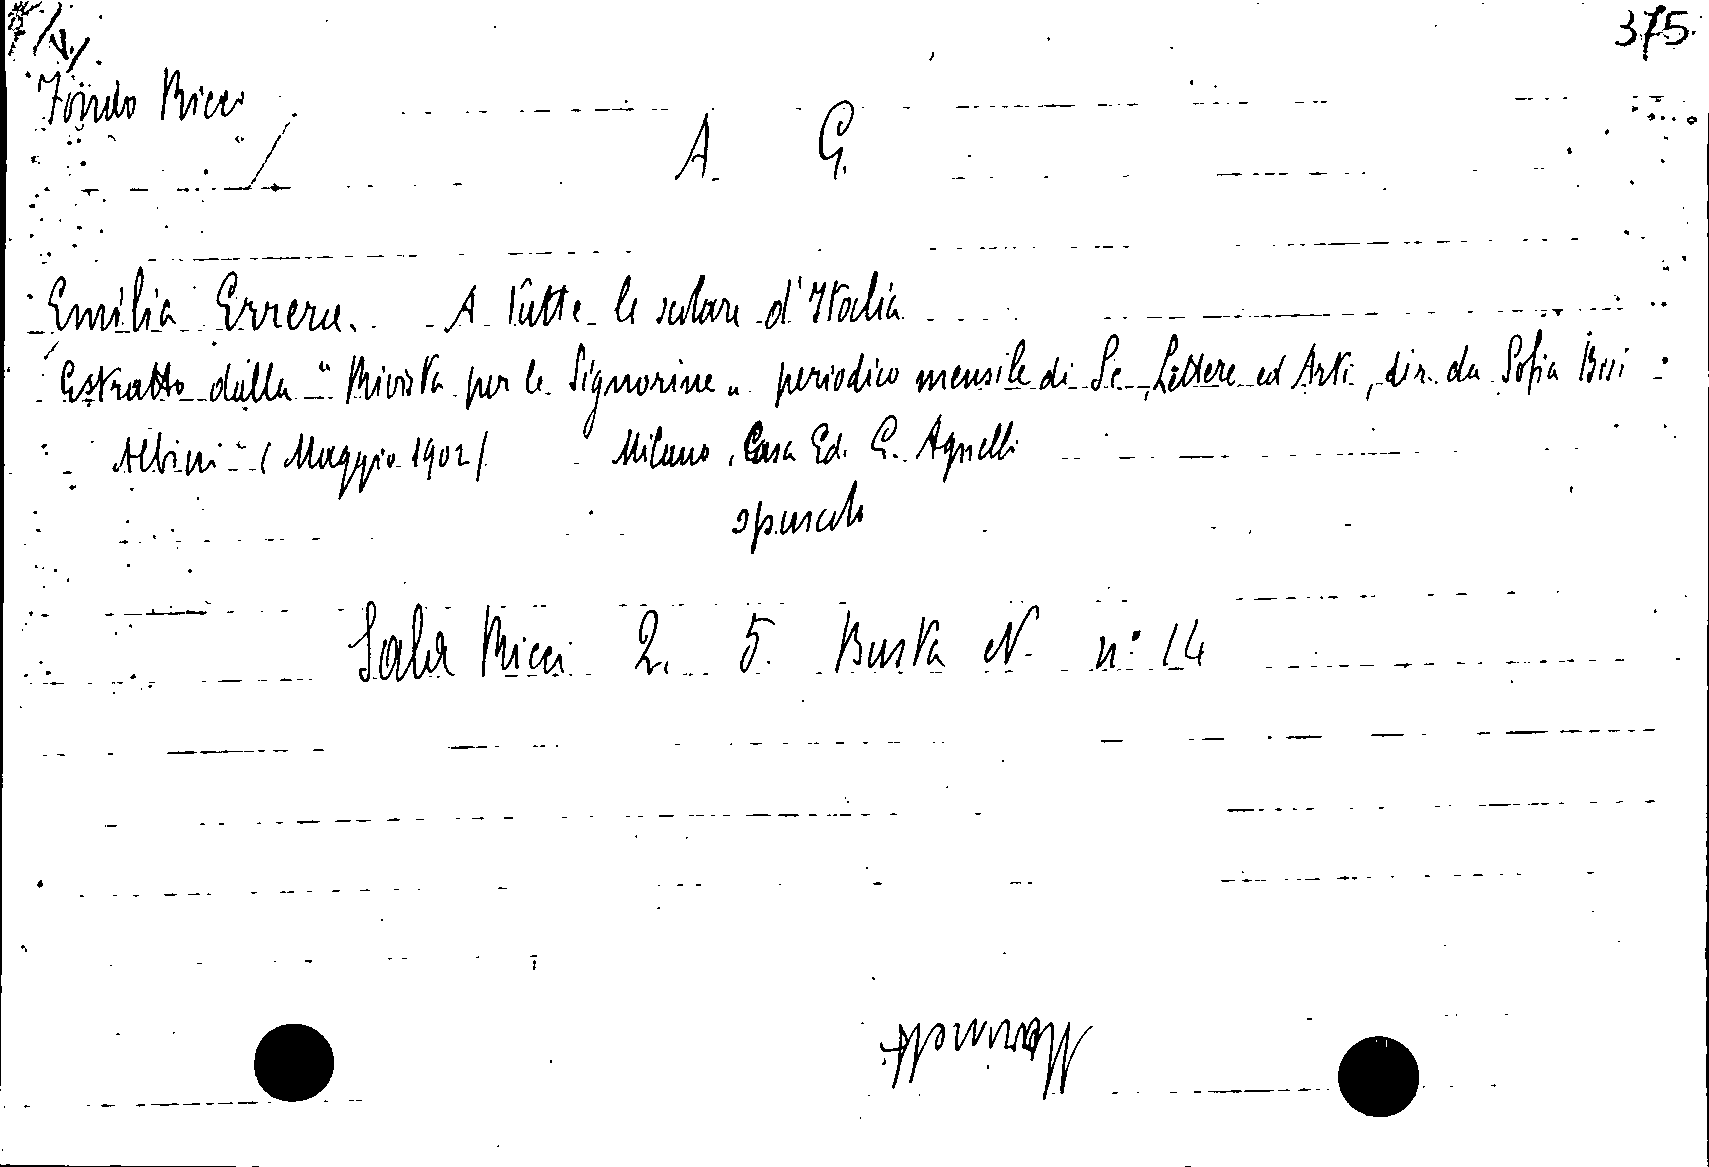 375
Fondo Ricci
A. G.
Emilia Errera. A tutte le scolare d'Italia
Estratto dalla "Rivista per le Signorine" periodico mensile di Sc., Lettere ed Arti, dir. da Sofia Bisi
Albini" (Maggio 1902) Milano, Casa Ed. G. Agnelli
opuscolo
Sala Ricci 2. 5. Busta N. n° 14
Marinetti